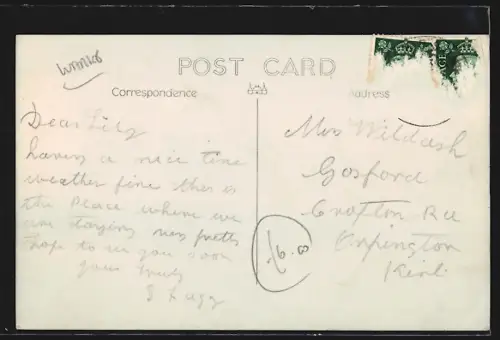 POST CARD
Correspondence
Address
Dear Lily
having a nice time
weather fine this is
the place where we
are staying very pretty
hope to see you soon
your truly
Mrs Wildash
Gosford
Crofton Rd
Orpington
Kent